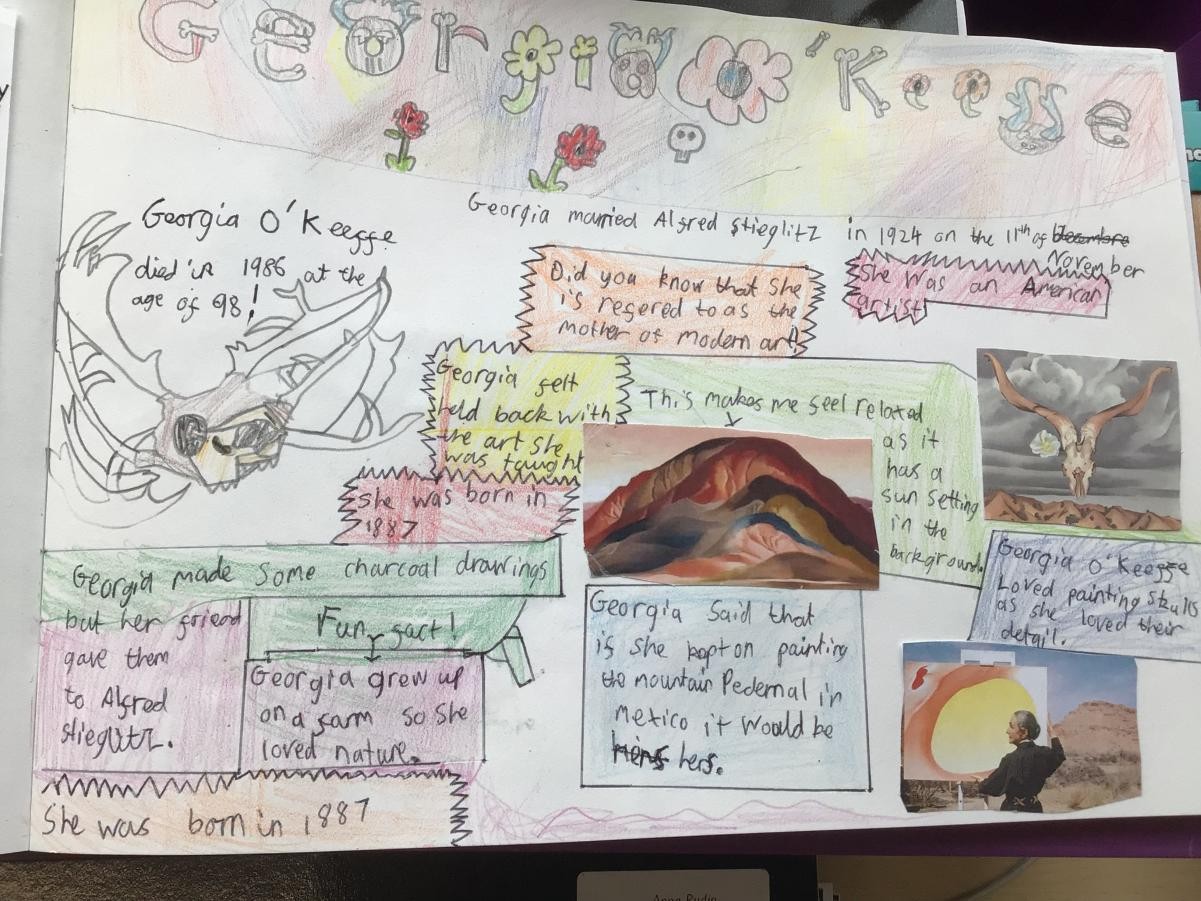 Georgia O'Keeffe
Georgia O'Keeffe
died in 1986 at the
age of 98!
Georgia married Alfred Stieglitz in 1924 on the 11th of Decembre
November
Did you know that she
is refered to as the
mother of modern art!
She Was an American
artist
Georgia felt
held back with
the art she
was taught
This makes me feel relaxed
as it
has a
sun setting
in the
background.
She was born in
1887
Georgia made some charcoal drawings
but her friend
gave them
to Alfred
stieglitz.
Fun fact!
Georgia grew up
on a farm so she
loved nature.
She was born in 1887
Georgia Said that
if she kept on painting
the mountain Pedernal in
Mexico it would be
hers.
Georgia O'Keeffe
Loved painting skulls
as she loved their
detail.